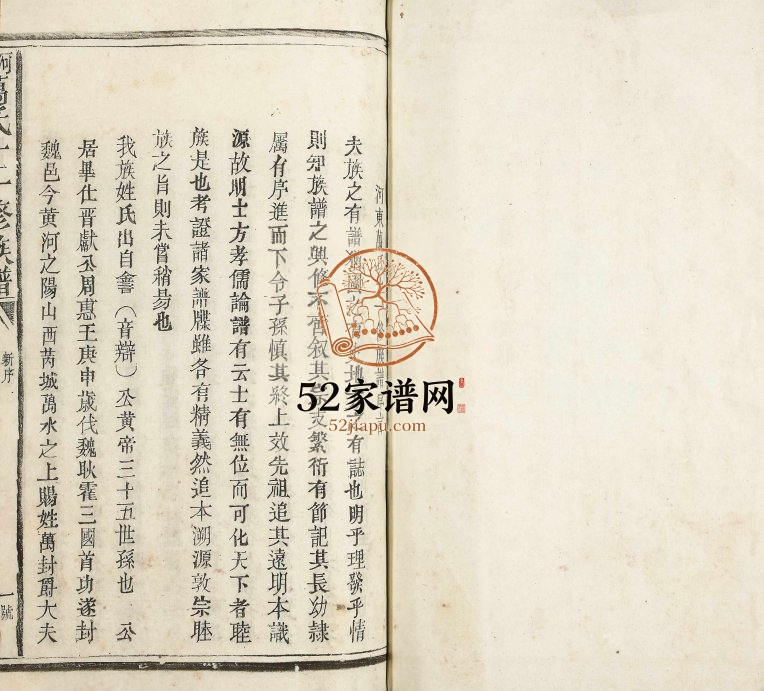 河東萬
夫族之有譜有地有誌也明乎理發乎情
則知族譜之興修不啻叙其支繁衍有節記其長幼隸
屬有序進而下令子孫慎其終上效先祖追其遠明本識
源故明士方孝儒論譜有云士有無位而可化天下者睦
族是也考證諸家譜牒雖各有精義然追本溯源敦宗睦
族之旨則未嘗稍易也
我族姓氏出自（音辯）公黃帝三十五世孫也 公
居畢仕晉獻公周惠王庚申歲伐魏耿霍三國首功遂封
魏邑今黃河之陽山西芮城萬水之上賜姓萬封爵大夫
河萬氏十二修族譜
新序
一號
52家谱网
52jiapu.com